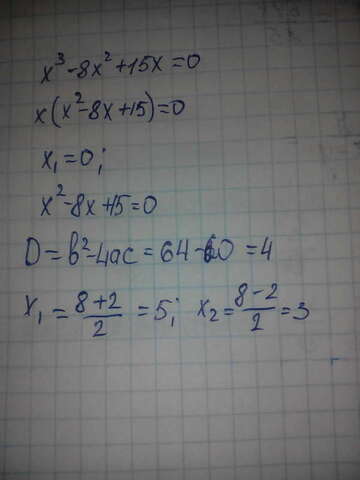 x³-8x²+15x=0
x(x²-8x+15)=0
x₁=0;
x²-8x+15=0
D=b²-4ac=64-60=4
x₁=(8+2)/2=5; x₂=(8-2)/2=3